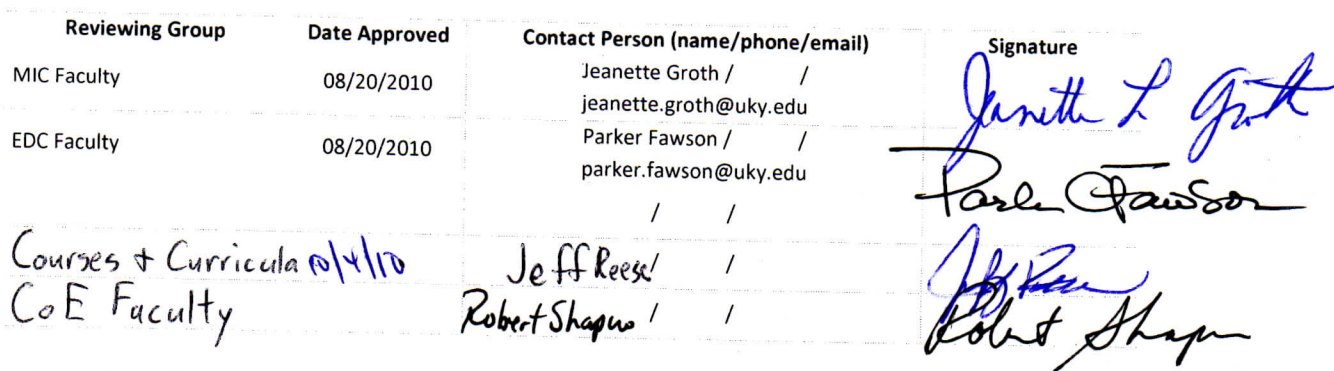 Reviewing Group Date Approved Contact Person (name/phone/email) Signature
MIC Faculty 08/20/2010 Jeanette Groth / / Jeanette L Groth
jeanette.groth@uky.edu
EDC Faculty 08/20/2010 Parker Fawson / / Parker C Fawson
parker.fawson@uky.edu
/ /
Courses + Curricula 10/4/10 Jeff Reese/ / Jeff Reese
CoE Faculty Robert Shapiro / / Robert Shapiro